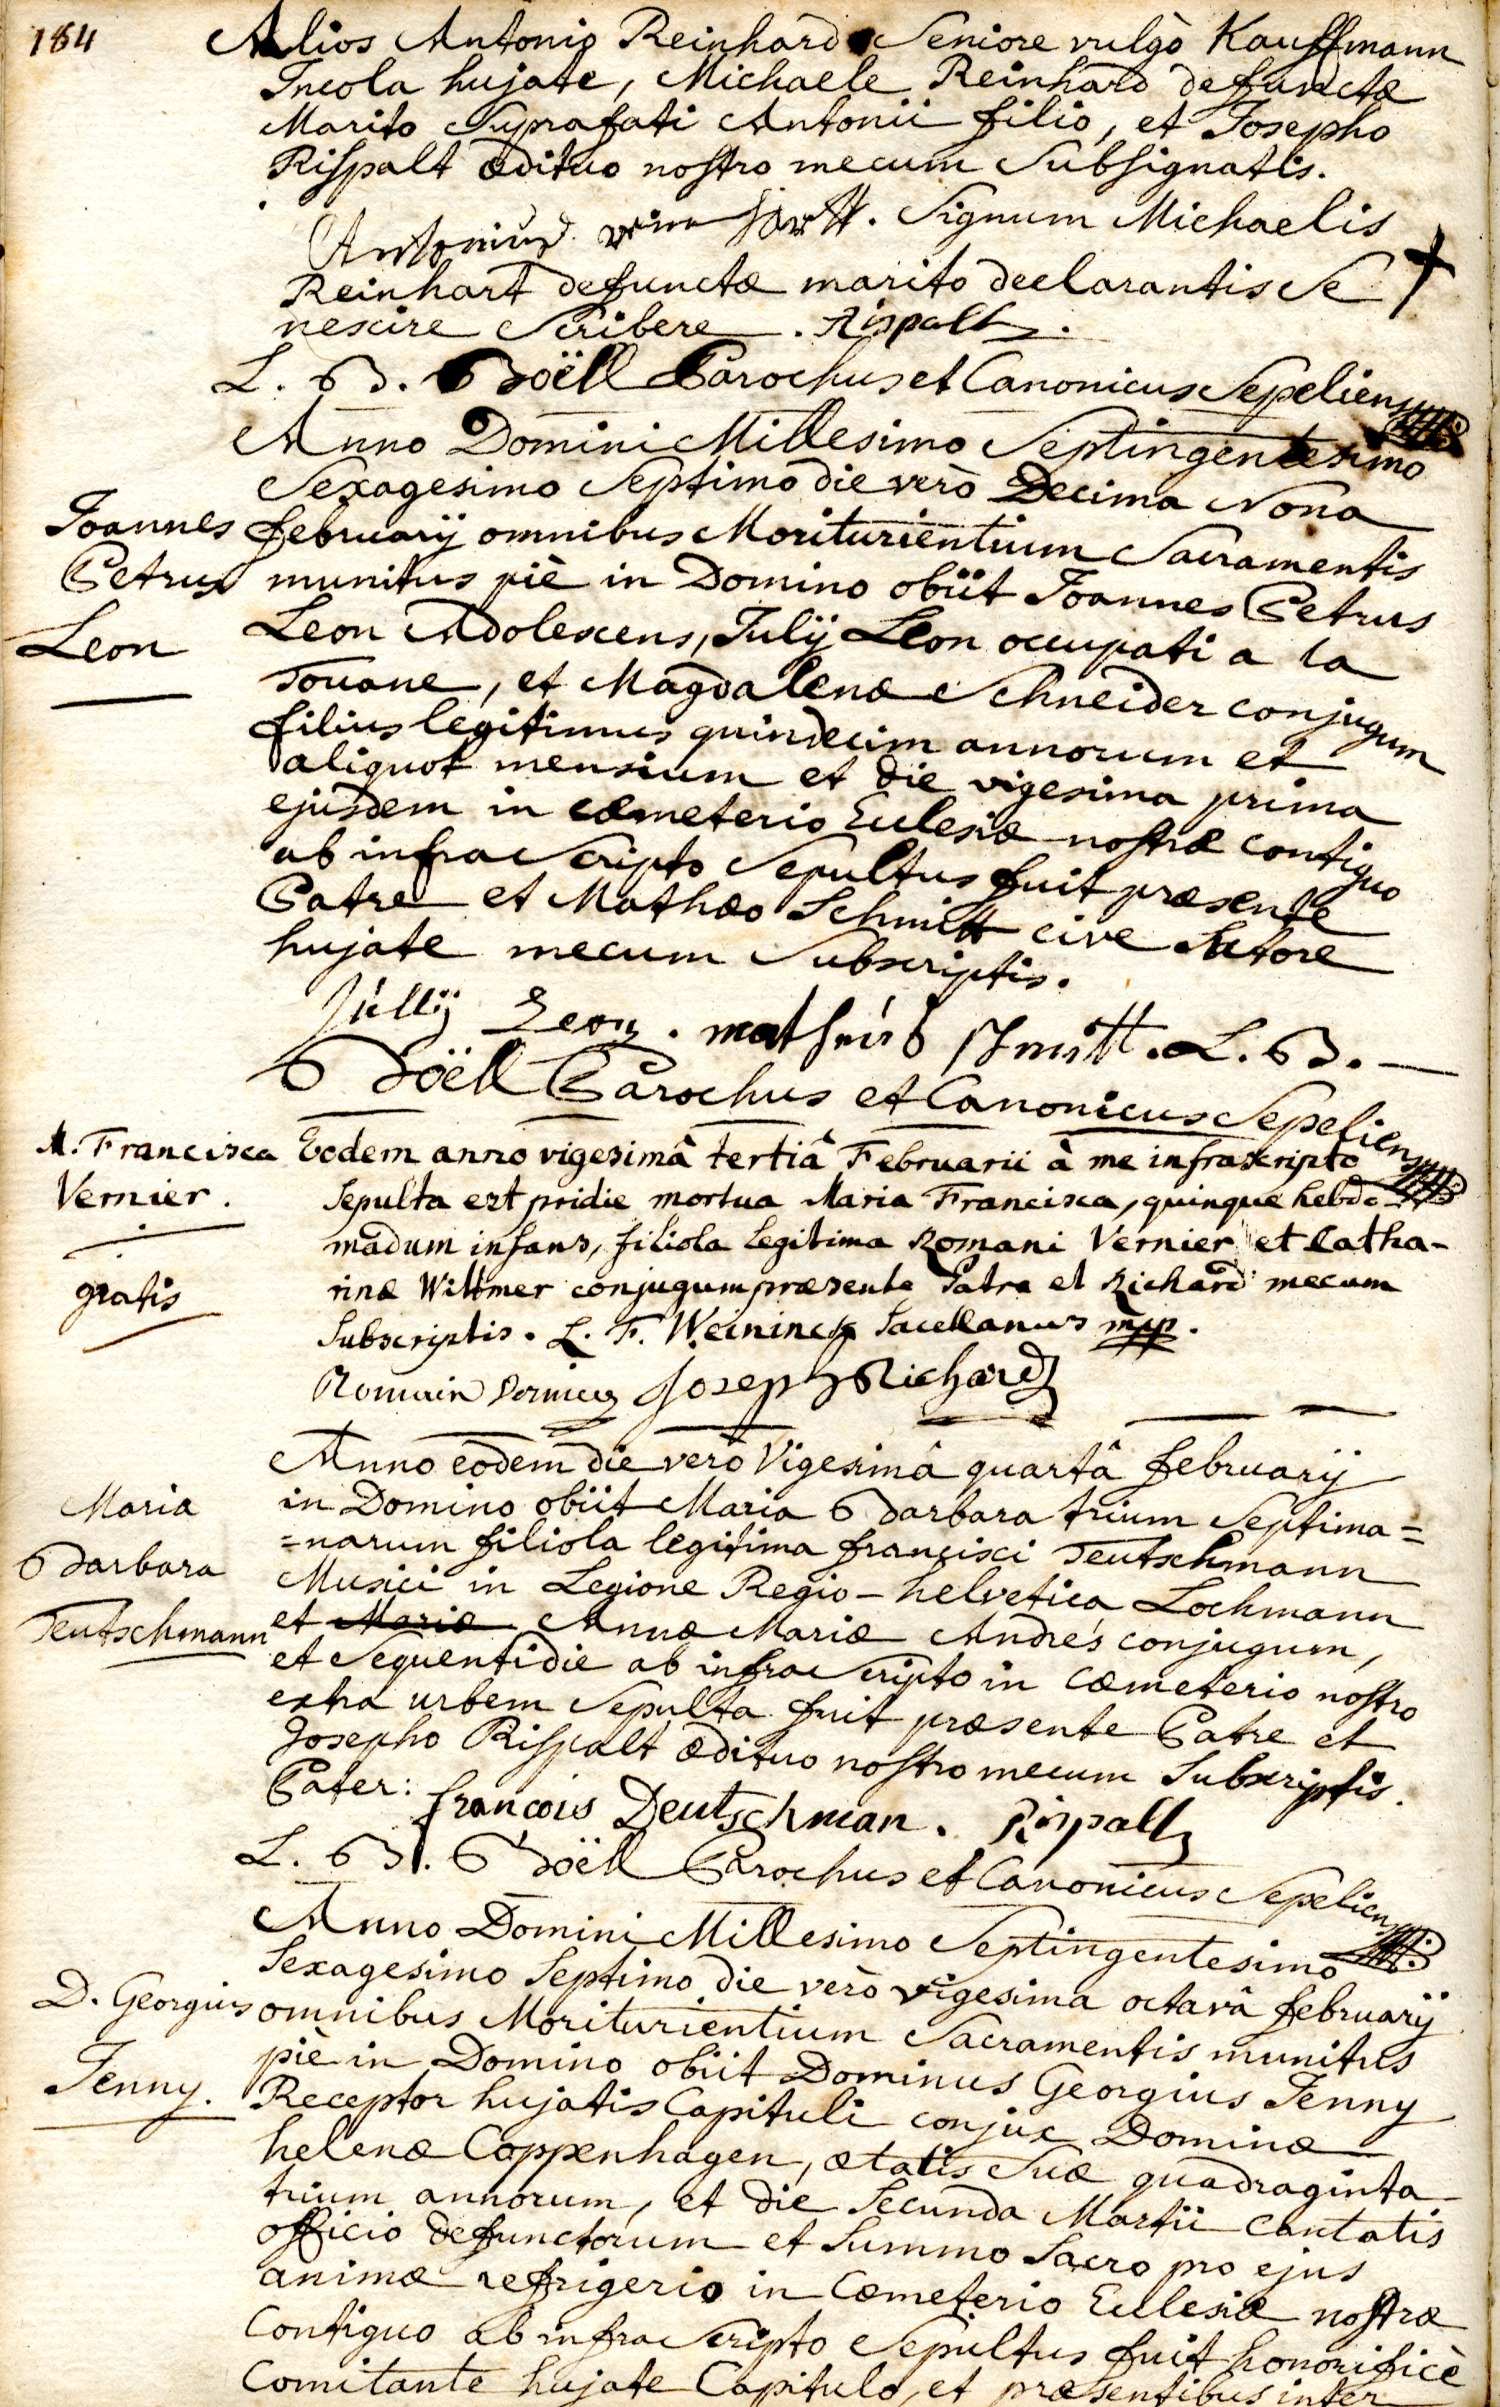 184
Alios Antonio Reinhard Seniore vulgò Kauffmann
Incola hujate, Michaele Reinhard defunctæ
Marito Suprafati Antonii filio, et Josepho
Rispalt ædituo nostro mecum Subsignatis.
Antonius. Signum Michaelis
Reinhart defunctæ marito declarantis Se
nescire Scribere. Rispalt.
L. B. Boëll Parochus et Canonicus Sepeliens
Anno Domini Millesimo Septingentesimo
Sexagesimo Septimo die verò Decima Nona
Joannes
Petrus
Leon
februarij omnibus Moriturientium Sacramentis
munitus piè in Domino obiit Joannes Petrus
Leon Adolescens, Julij Leon occupati a la
Douane, et Magdalenæ Schneider conjugum
filius legitimus quindecim annorum et
aliquot mensium et die vigesima prima
ejusdem in cæmeterio Ecclesiæ nostræ contiguo
ab infrascripto Sepultus fuit præsente
Patre et Mathæo Schmitt cive Sutore
hujate mecum Subscriptis.
Jullij Leon. matheus schmitt. L. B.
Boëll Parochus et Canonicus Sepeliens
M. Francisca
Vernier.
gratis
Eodem anno vigesimâ tertiâ Februarii à me infrascripto
Sepulta est pridie mortua Maria Francisca, quinque hebdo
madum infans, filiola legitima Romani Vernier et Catha-
rinæ Wittmer conjugum præsente Patre et Richard mecum
Subscriptis. L. F. Weininck Sacellanus mpp.
Romain Vernier Joseph Richard
Anno eodem die verò Vigesimâ quartâ februarij
Maria
Barbara
Teutschmann
in Domino obiit Maria Barbara trium Septima=
=narum filiola legitima francisci Teutschmann
Musici in Legione Regio-helvetica Lochmann
et Mariæ Annæ Mariæ Andrés conjugum,
et Sequenti die ab infrascripto in cæmeterio nostro
extra urbem Sepulta fuit præsente Patre et
Josepho Rispalt ædituo nostro mecum Subscriptis.
Pater: françois Deutschman. Rispalt
L. B. Boëll Parochus et Canonicus Sepeliens
Anno Domini Millesimo Septingentesimo
Sexagesimo Septimo die verò vigesima octavâ februarij
D. Georgius
Jenny.
omnibus Moriturientium Sacramentis munitus
piè in Domino obiit Dominus Georgius Jenny
Receptor hujatis Capituli conjux Dominæ
helenæ Coppenhagen, ætatis Suæ quadraginta
trium annorum, et die Secunda Martii cantatis
officio defunctorum et Summo Sacro pro ejus
animæ refrigerio in Cæmeterio Ecclesiæ nostræ
Contiguo ab infrascripto Sepultus fuit honorificè
Comitante hujate Capitulo, et præsentibus inter